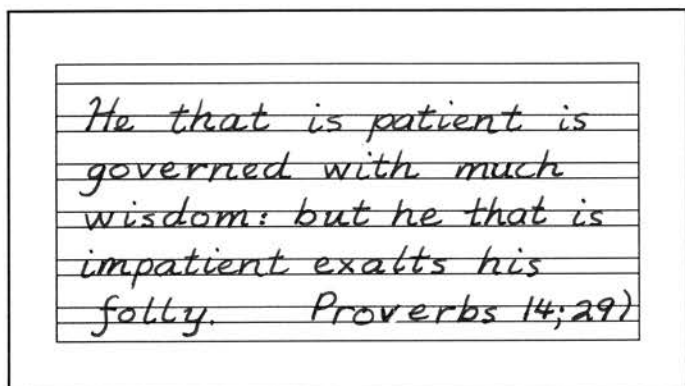 He that is patient is
governed with much
wisdom: but he that is
impatient exalts his
folly. Proverbs 14;29)